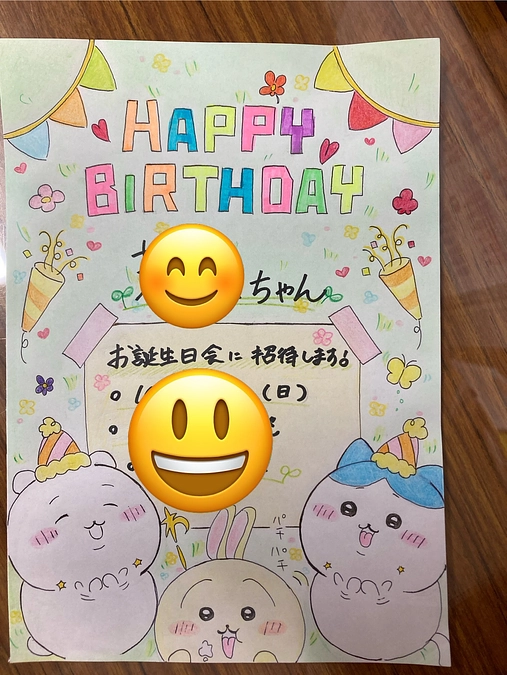 HAPPY
BIRTHDAY
ちゃん
お誕生日会に招待します。
(日)
パチ
パチ